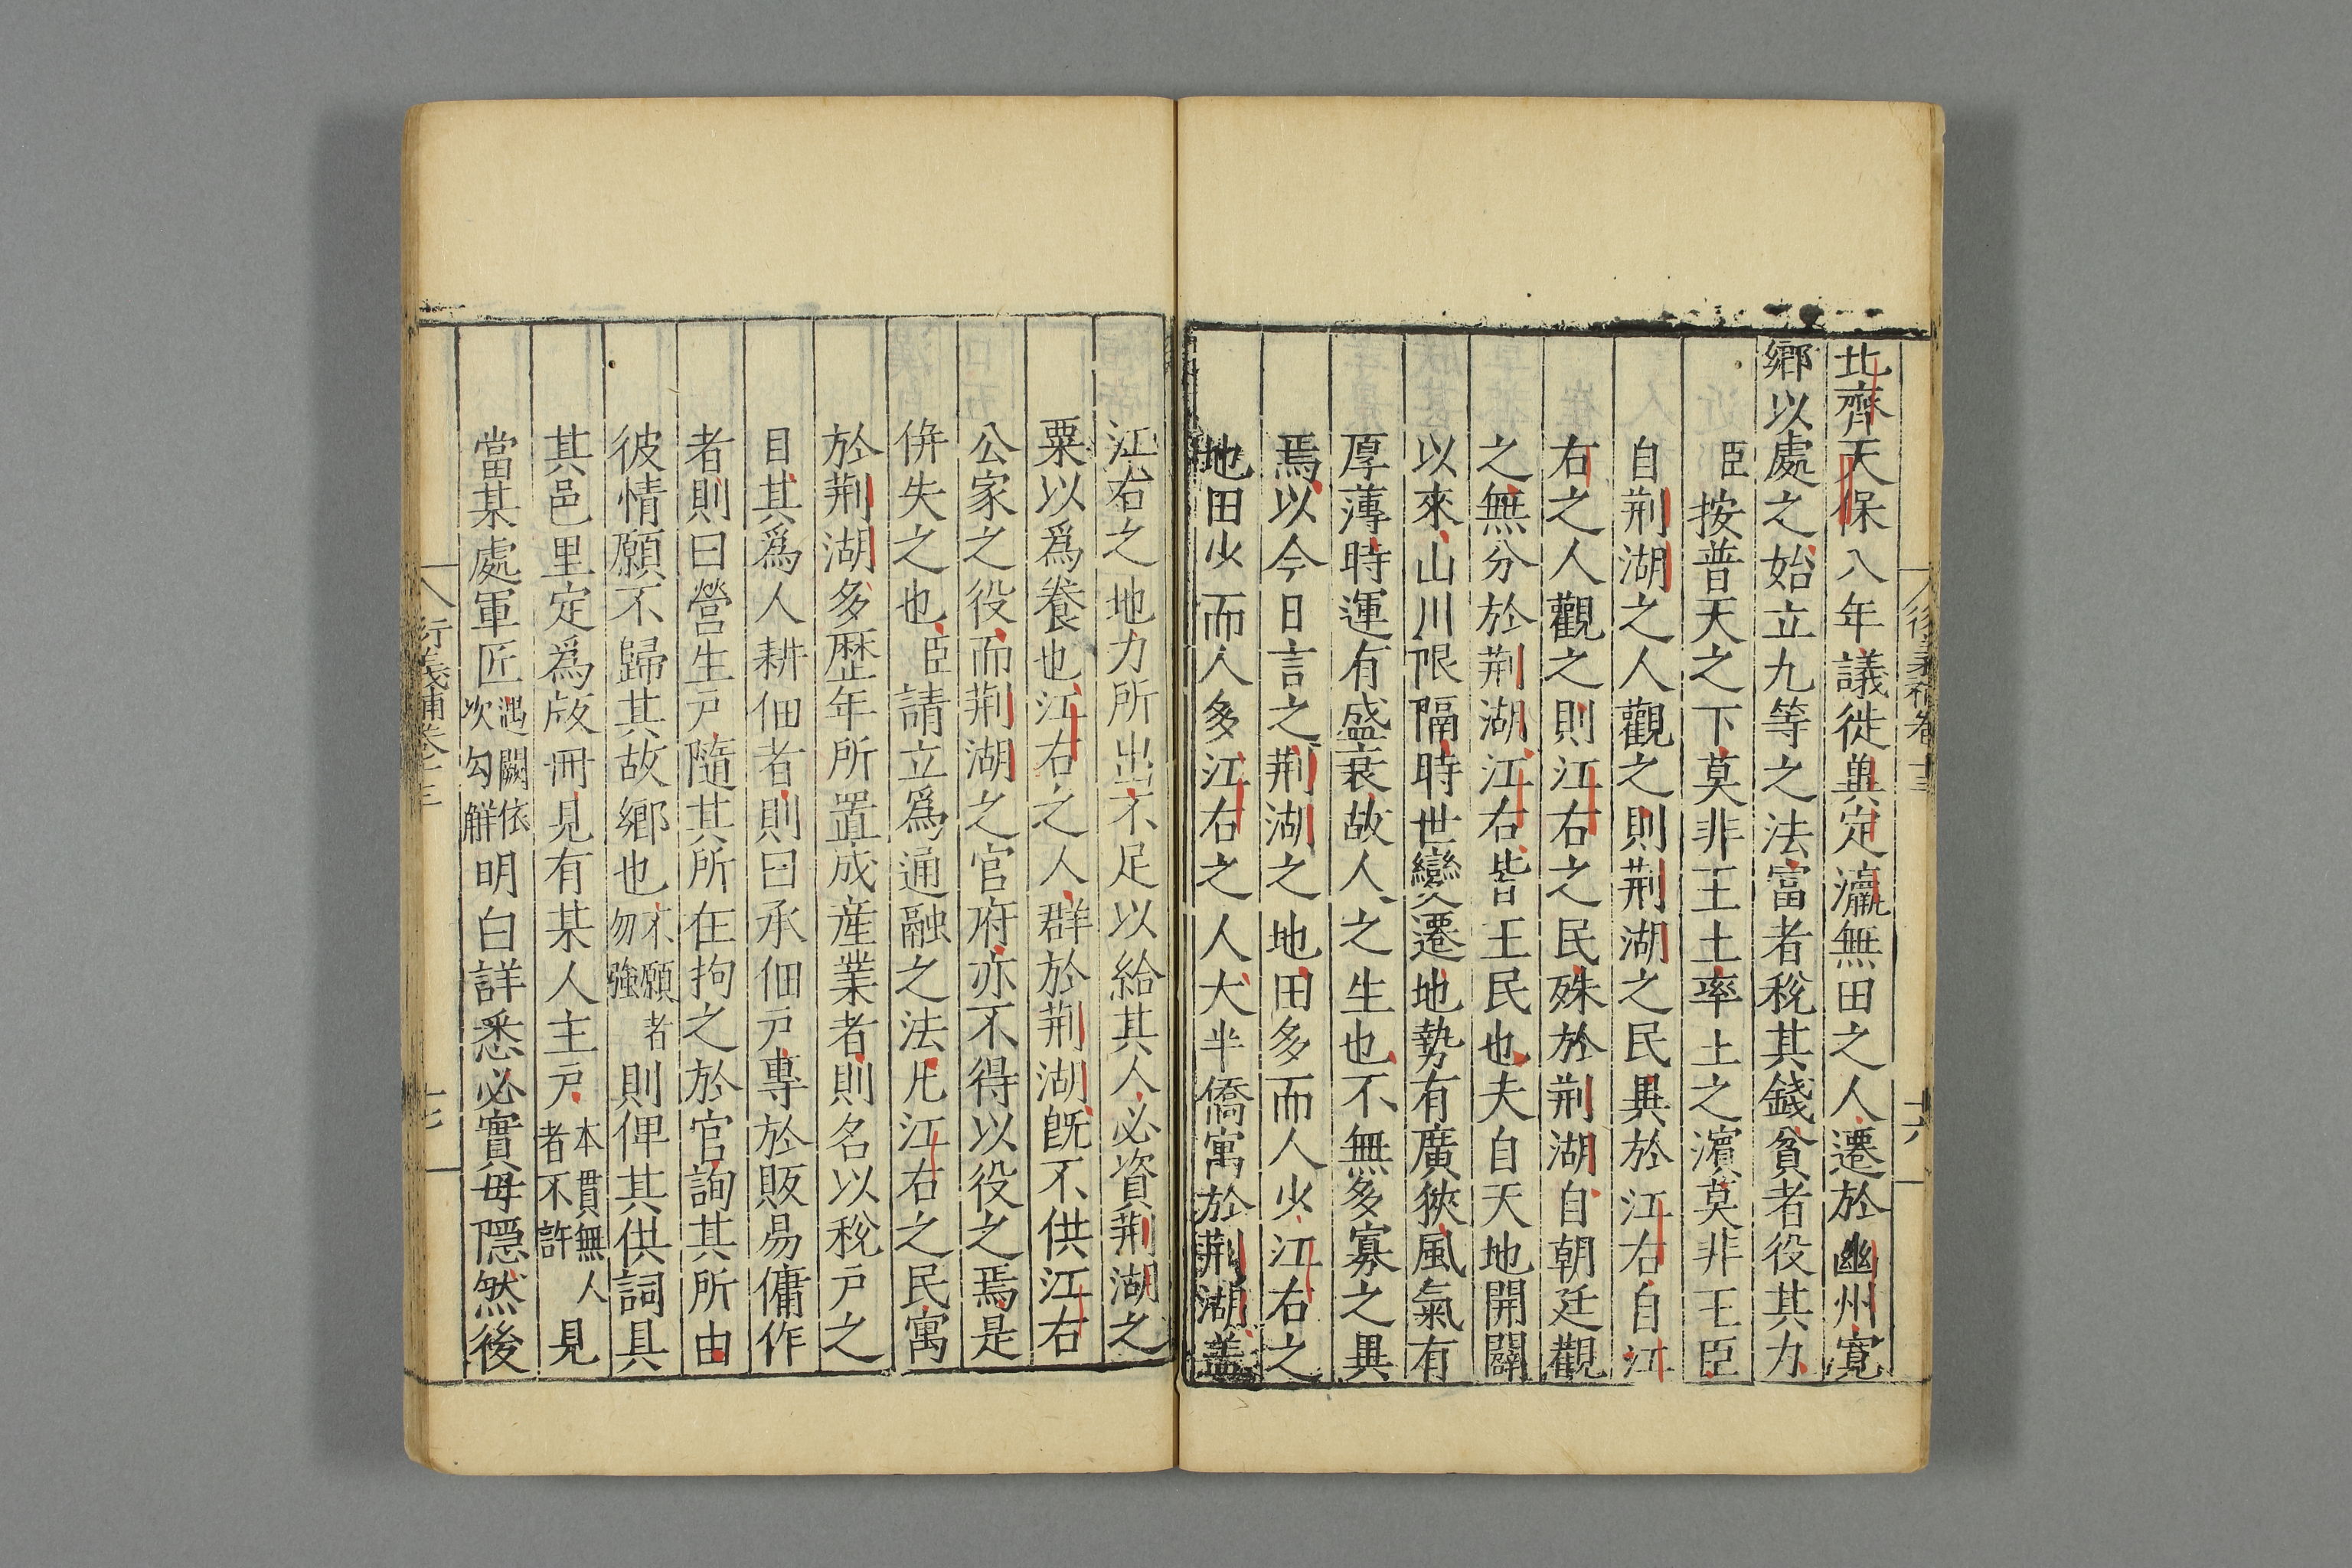 北齊天保八年議徙兾定瀛無田之人遷於幽州寛
鄉以處之始立九等之法富者稅其錢貧者役其力
臣按普天之下莫非王土率土之濵莫非王臣
自荆湖之人觀之則荆湖之民異於江右自江
右之人觀之則江右之民殊於荆湖自朝廷觀
之無分於荆湖江右皆王民也夫自天地開闢
以來山川限隔時世變遷地勢有廣狹風氣有
厚薄時運有盛衰故人之生也不無多寡之異
焉以今日言之荆湖之地田多而人少江右之
地田少而人多江右之人大半僑寓於荆湖盖
江右之地力所出不足以給其人必資荆湖之
粟以爲養也江右之人群於荆湖旣不供江右
公家之役而荆湖之官府亦不得以役之焉是
併失之也臣請立爲通融之法凡江右之民寓
於荆湖多歷年所置成産業者則名以稅戸之
目其爲人耕佃者則曰承佃戸專於販易傭作
者則曰營生戸隨其所在拘之於官詢其所由
彼情願不歸其故鄉也不願者勿強則俾其供詞具
其邑里定爲版冊見有某人主戸本貫無人者不許見
當某處軍匠遇闕依次勾解明白詳悉必實毋隱然後
衍義補卷十三
十六
衍義補卷十三
十七